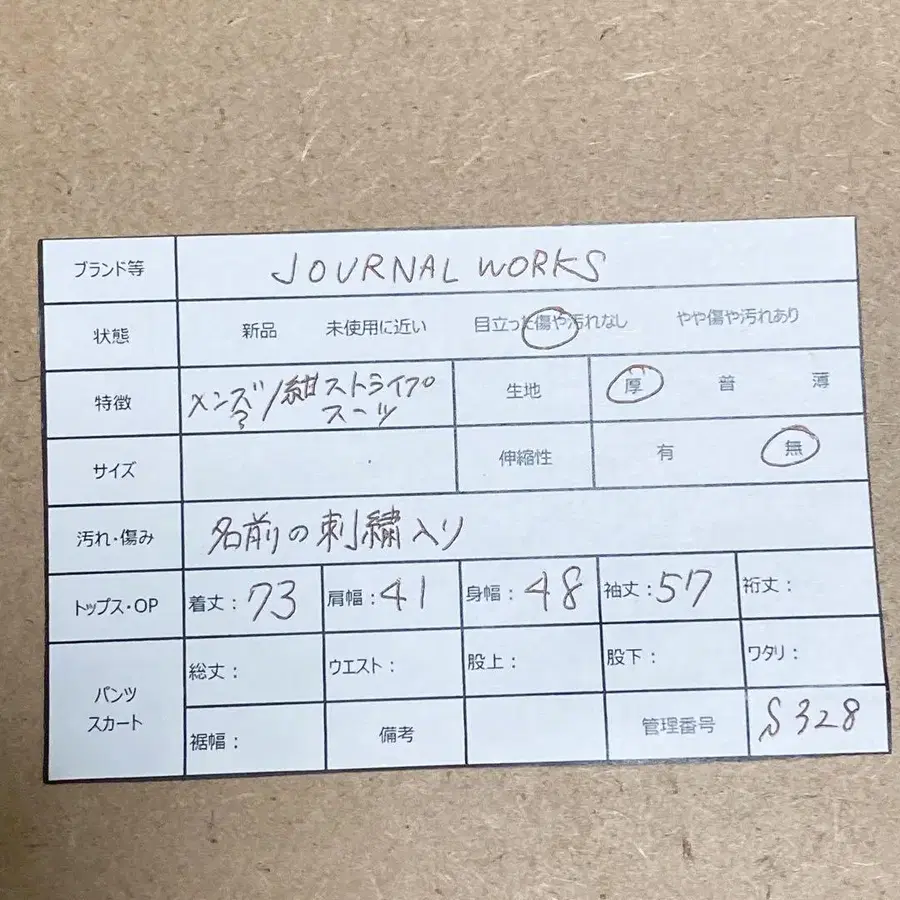 ブランド等 JOURNAL WORKS
状態 新品 未使用に近い 目立った傷や汚れなし やや傷や汚れあり
特徴 メンズ?/紺ストライプ
スーツ
生地 厚 普 薄
サイズ 伸縮性 有 無
汚れ・傷み 名前の刺繍入り
トップス・OP 着丈:73 肩幅:41 身幅:48 袖丈:57 裄丈:
パンツ
スカート
総丈: ウエスト: 股上: 股下: ワタリ:
裾幅: 備考 管理番号 S328